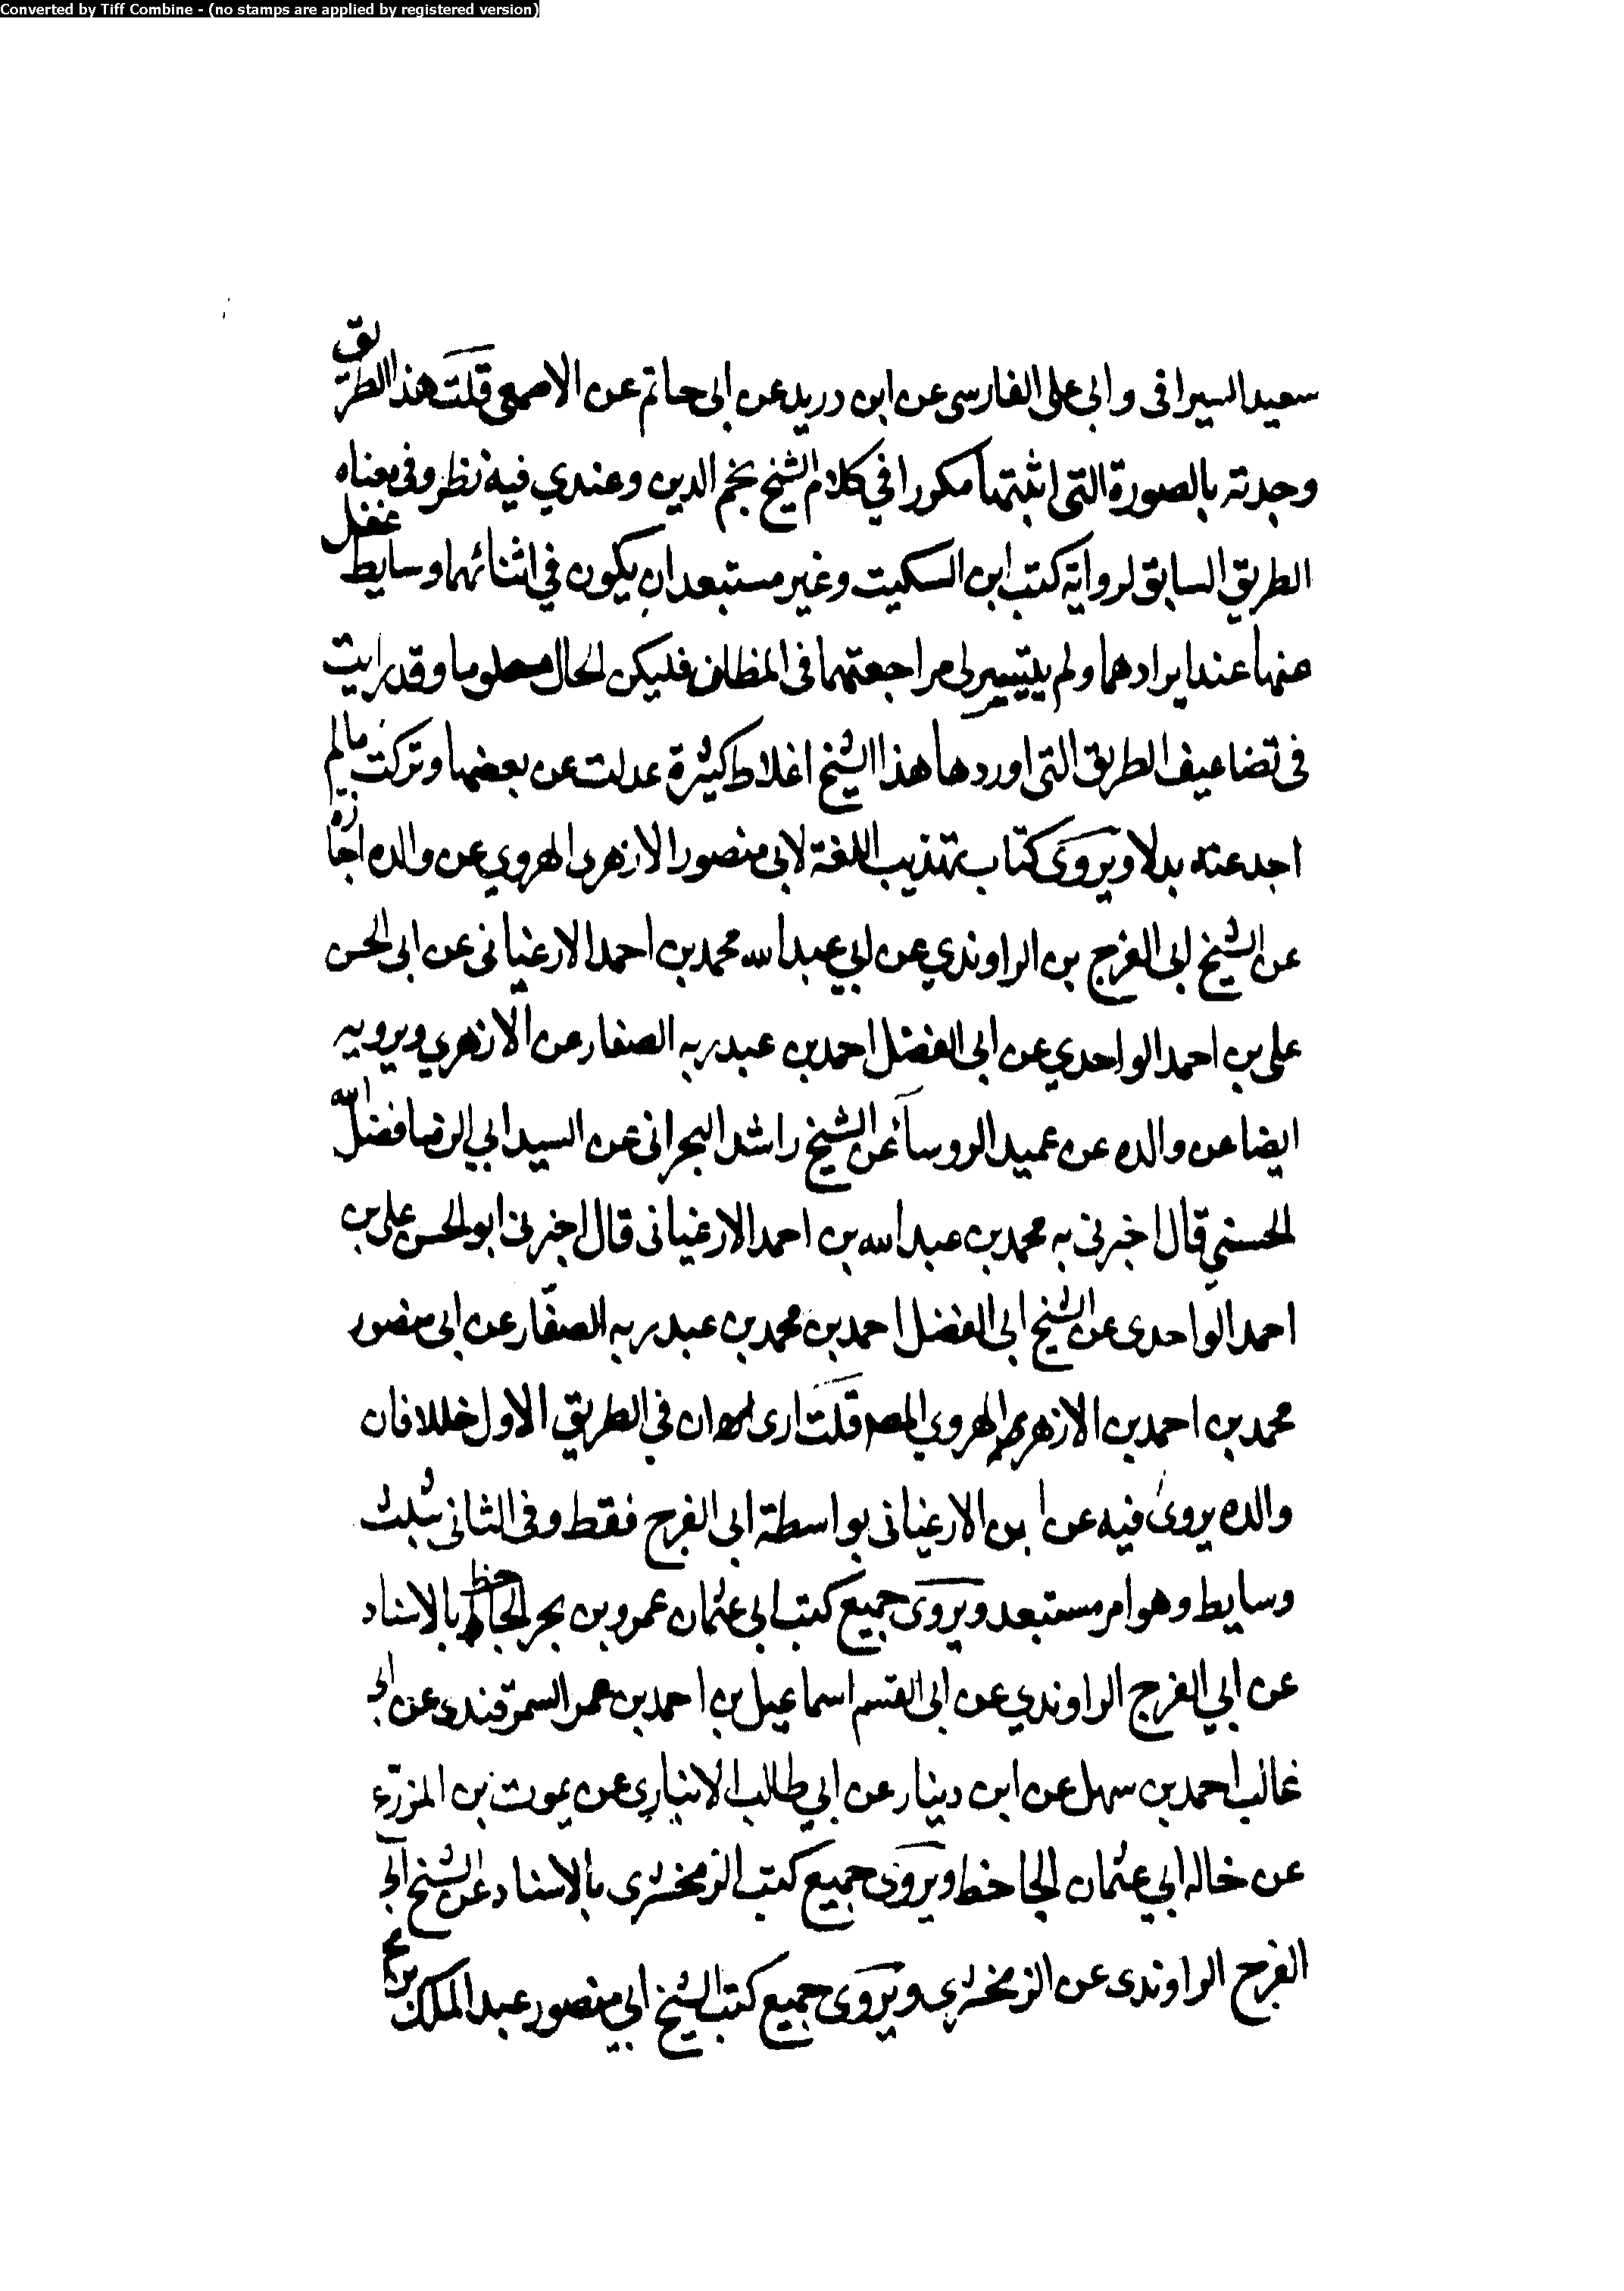 Converted by Tiff Combine - (no stamps are applied by registered version)
سعيد السيرافى وابى على الفارسى عن ابن دريد عن ابى حاتم عن الاصمعى قلت هذا الطريق
وجدته بالصورة التى اثبتها مكررا في كلام الشيخ نجم الدين وعندي فيه نظر وفى معناه
الطريق السابق لرواية كتب ابن السكيت وغير مستبعد ان يكون في اثنائهما وسايط غفل
عنها عند ايرادهما ولم يتيسر لى مراجعتهما فى المظان فليكن الحال معلوما وقد رايت
فى تضاعيف الطريق التى اوردها هذا الشيخ اغلاط كثيرة عدلت عن بعضها وتركت مالم
اجد عنه بدلا ويروى كتاب تهذيب اللغة لابى منصور الازهرى الهروي عن والده اجازه
عن الشيخ ابى الفرج بن الراوندي عن ابي عبد الله محمد بن احمد الارغيانى عن ابى الحسن
على بن احمد الواحدي عن ابى الفضل احمد بن عبدربه الصفار عن الازهري ويرويه
ايضا عن والده عن عميد الروسا عن الشيخ راشد البحرانى عن السيد ابي الرضا فضل الله
الحسني قال اخبرنى به محمد بن عبد الله بن احمد الارغيانى قال اخبرنى ابو الحسن على بن
احمد الواحدى عن الشيخ ابى الفضل احمد بن محمد بن عبدربه الصفار عن ابى منصور
محمد بن احمد بن الازهرى الهروي المصر قلت ارى ان في الطريق الاول خللا فان
والده يروى فيه عن ابن الارغيانى بواسطة ابى الفرج فقط وفى الثانى بثلث
وسايط وهو امر مستبعد ويروى جميع كتب ابي عثمان عمرو بن بحر الجاحظ بالاسناد
عن ابي الفرج الراوندي عن ابى القسم اسماعيل بن احمد بن عمر السمرقندى عن ابى
غالب احمد بن سهل عن ابن دينار عن ابي طالب الانباري عن يموت بن المزرع
عن خاله ابي عثمان الجاحظ ويروى جميع كتب الزمخشرى بالاسناد عن الشيخ ابى
الفرج الراوندى عن الزمخشري ويروى جميع كتب الشيخ ابي منصور عبد الملك بن